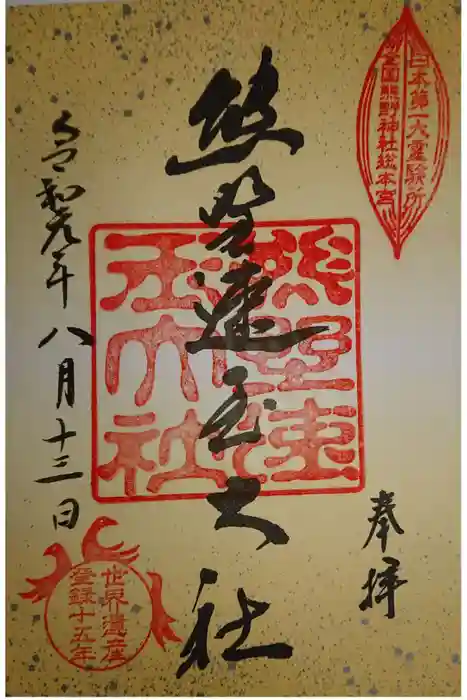 日本第一大霊験所
全国熊野神社総本宮
奉拝
熊野速玉大社
熊野速玉大社
令和元年八月十三日
世界遺産
登録十五年